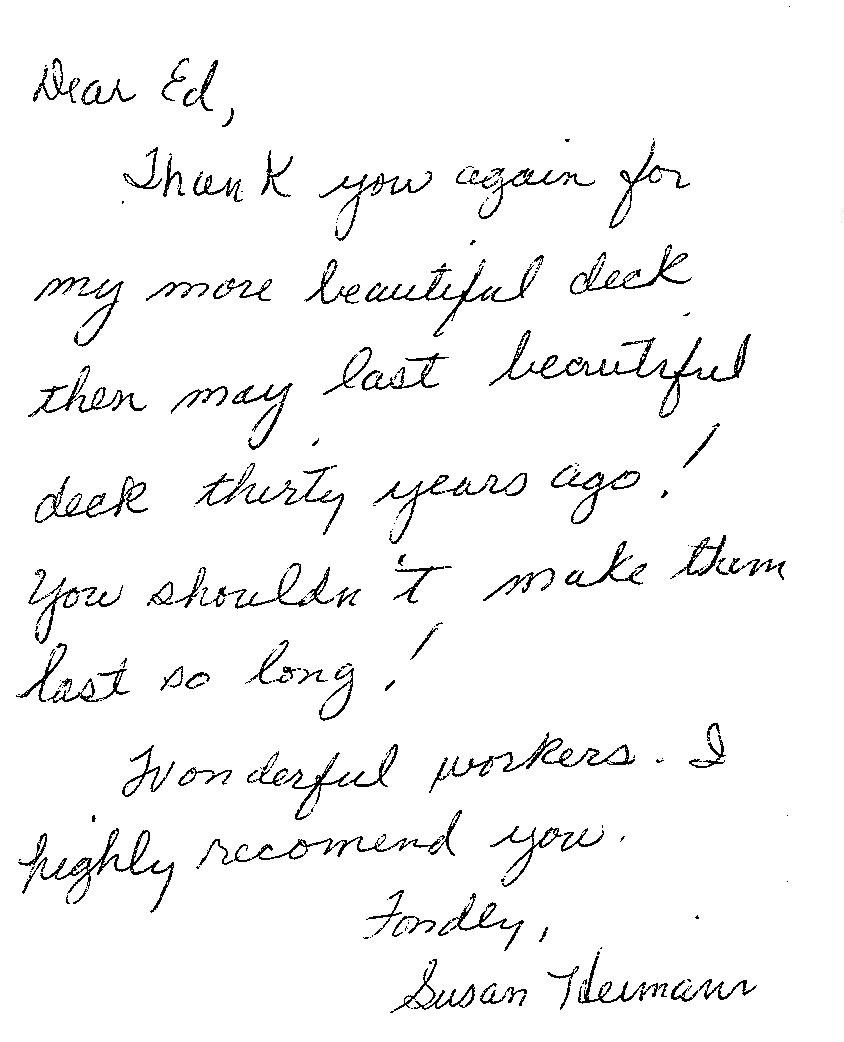 Dear Ed,
Thank you again for
my more beautiful deck
then may last beautiful
deck thirty years ago!
You shouldn't make them
last so long!
Wonderful workers. I
highly recomend you.
Fondly,
Susan Heimann